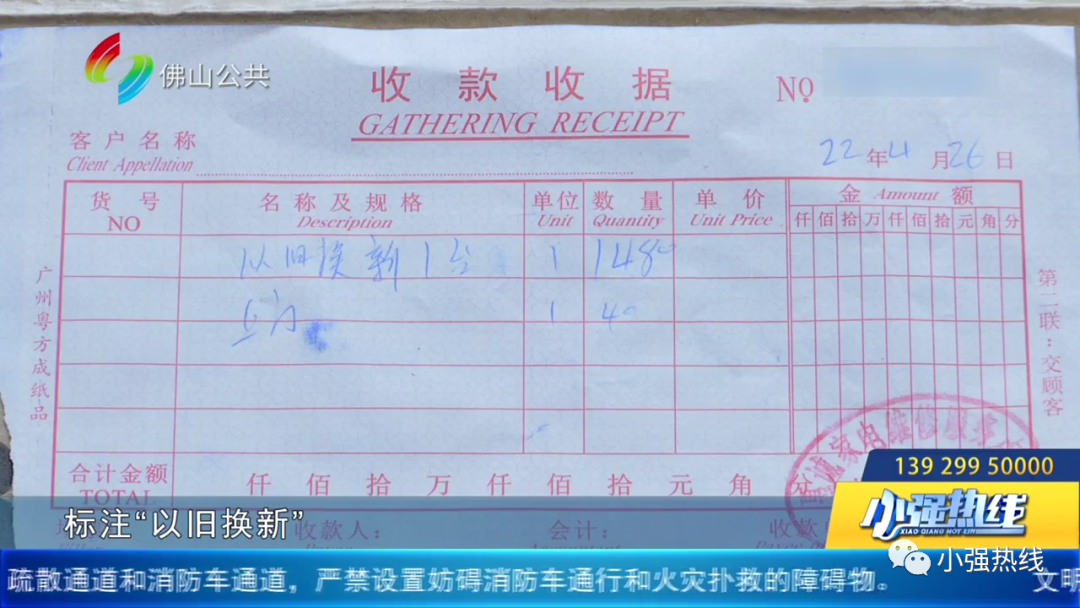 佛山公共
收款收据
NO
GATHERING RECEIPT
客户名称
Client Appellation
22年4月26日
货号 名称及规格 单位 数量 单价 金 Amount 额
NO Description Unit Quantity Unit Price
仟佰拾万仟佰拾元角分
以旧换新1台 1 1480
1 40
广州粤方成纸品
第二联:交顾客
家电维修服务
合计金额 仟 佰 拾 万 仟 佰 拾 元 角
TOTAL
收款人: 会计: 收款
标注“以旧换新”
139 299 50000
小强热线
XIAO QIANG HOT LINE
小强热线
疏散通道和消防车通道，严禁设置妨碍消防车通行和火灾扑救的障碍物。 文明